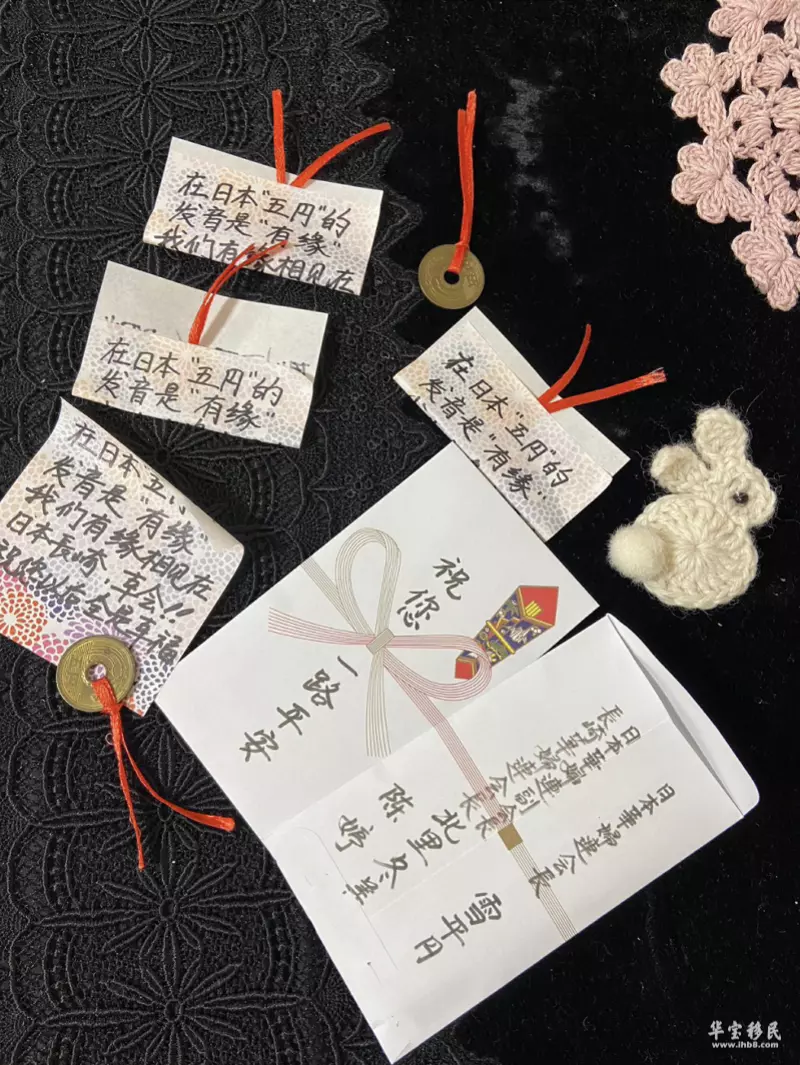 在日本“五円”的
发音是“有缘”
我们有缘相见在
在日本“五円”的
发音是“有缘”
在日本“五円”的
发音是“有缘”
在日本“五
发音是“有缘
我们有缘相见在
日本長崎,年会!!
以后全是幸福
祝您
一路平安
日本華婦連会長
雪平円
日本華婦連副会長
長崎華婦連会長
北里冬
陈婷
华宝移民
www.ihb8.com